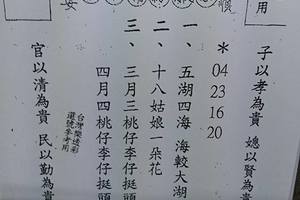 用
子以孝為貴 媳以賢為貴
*04 23 16 20
一、五湖四海 海較大湖
二、十八姑娘一朵花
三、三月三桃仔李仔挺頭
四月四桃仔李仔挺頭
台灣樂透彩
選號參考用
官以清為貴 民以勤為貴